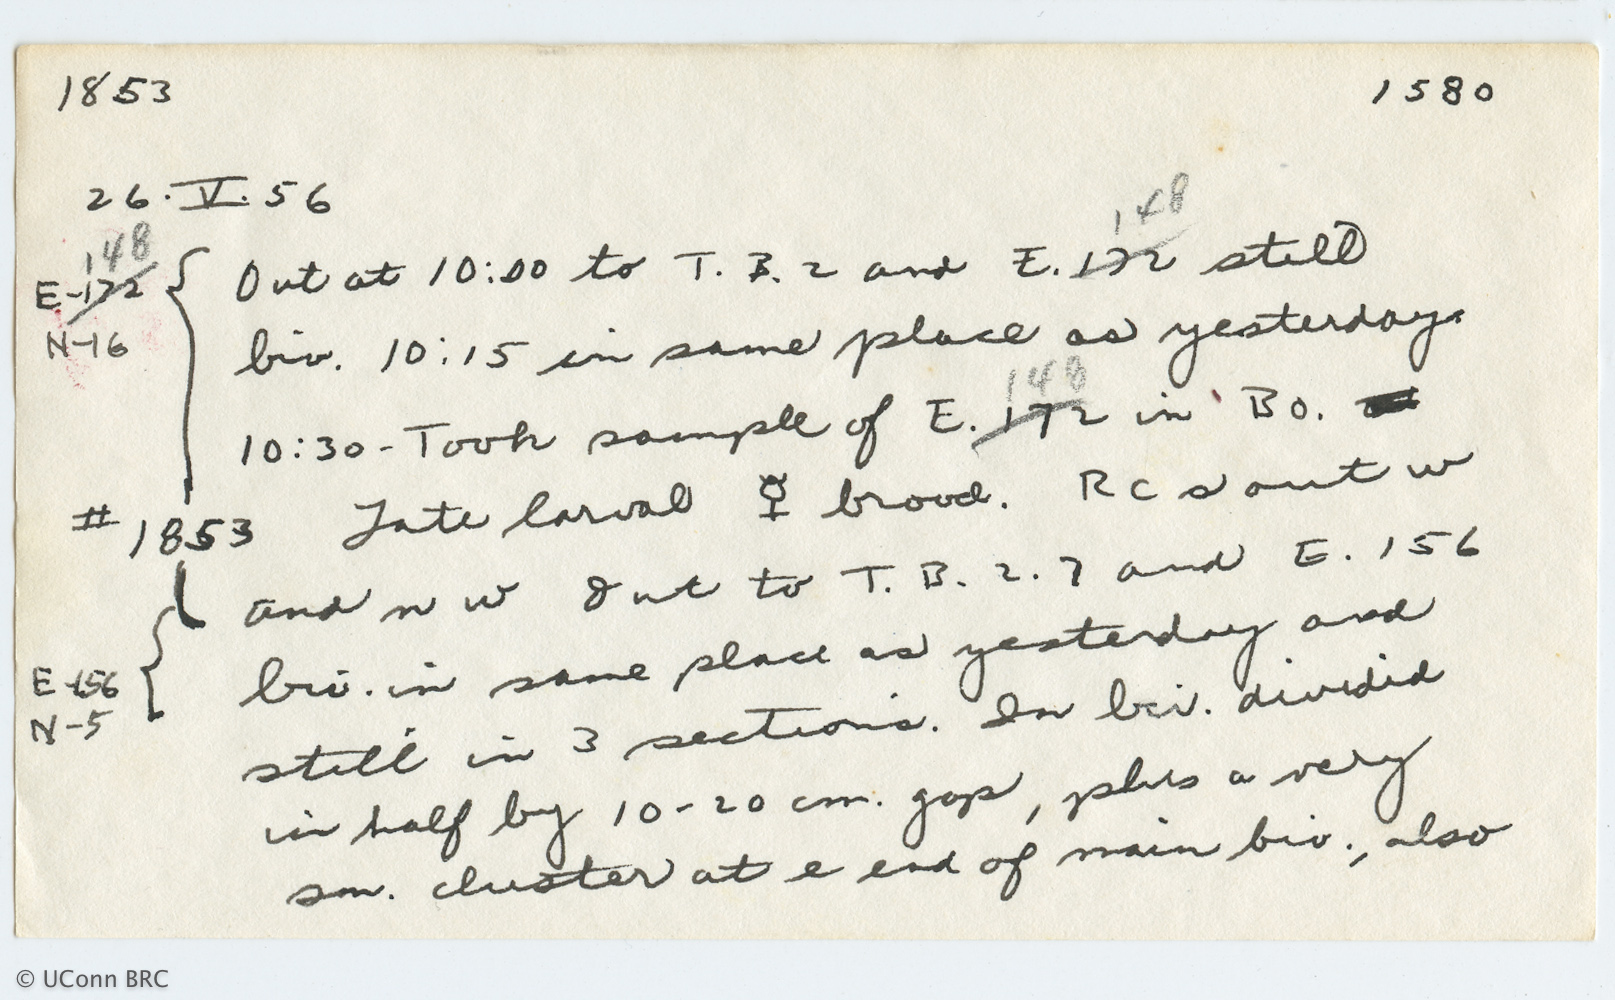 1853 1580
26.V.56
148
148
E-172 Out at 10:00 to T.B.2 and E.172 still
N-16 biv. 10:15 in same place as yesterday.
148
10:30-Took sample of E.172 in Bo.
#1853 Late larval ☿ brood. RC s out w
and n w Out to T.B.2.7 and E.156
E-156 biv. in same place as yesterday and
N-5 still in 3 sections. In biv. divided
in half by 10-20 cm. gap, plus a very
sm. cluster at e end of main biv., also
© UConn BRC